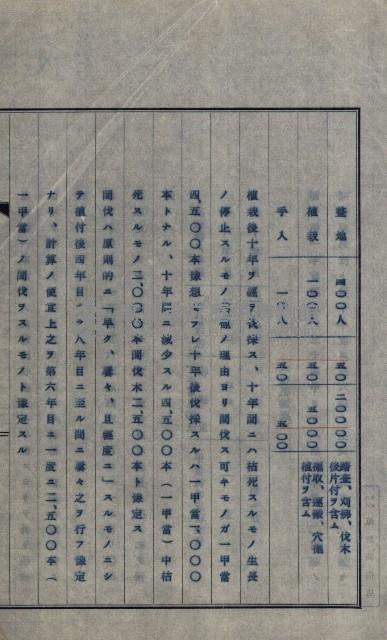 整地 四〇〇人 五〇 二〇〇〇〇 踏査、刈拂、伐木後片付ヲ含ム
植栽 一〇〇人 五〇 五〇〇〇 運搬、穴掘植付ヲ含ム
手入 五〇 五〇〇
植栽後十年ヲ經テ伐採ス、十年間ニハ枯死スルモノ生長
ノ停止スルモノ 理由ヨリ間伐ス可キモノガ一甲當
四、五〇〇本豫想 十年後伐採スルハ一甲當一、〇〇〇
本トナル、十年間ニ減少スル四、五〇〇本（一甲當）中枯
死スルモノ二、〇〇〇本間伐木二、五〇〇本ト豫定ス
間伐ハ原則的ニ「早ク、屢々、且輕度ニ」スルモノニシ
テ植付後四年目 八年目ニ至ル間ニ屢々之ヲ行フ豫定
ナリ、計算ノ便宜上之ヲ第六年目ニ一度ニ二、五〇〇本（
一甲當）ノ間伐ヲスルモノト豫定スル